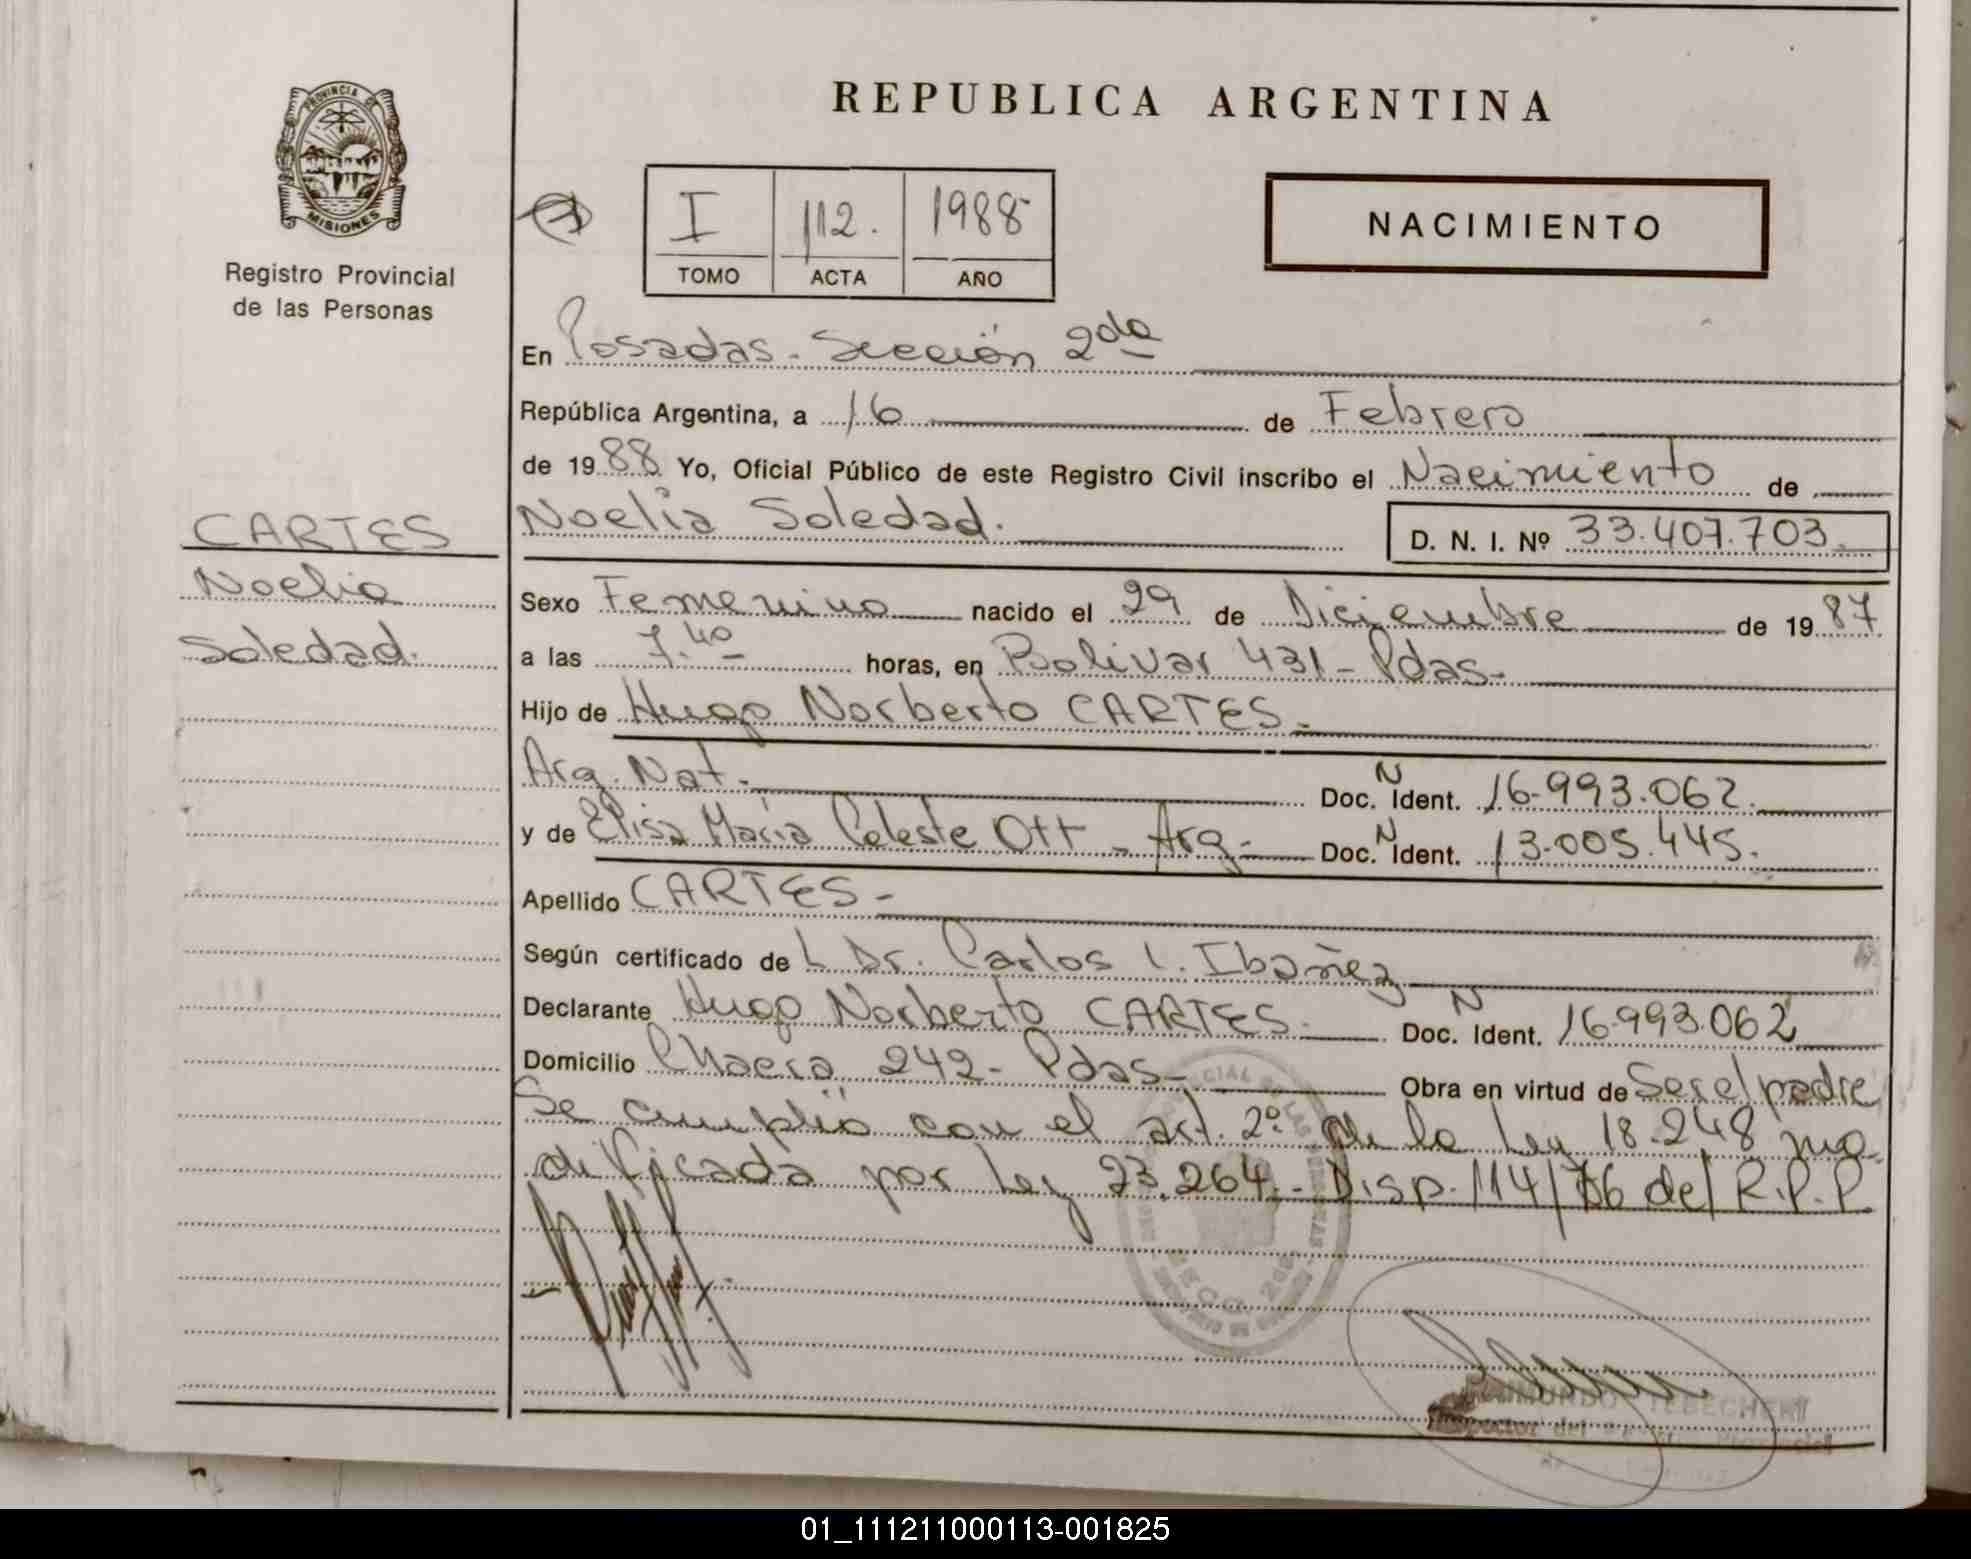 PROVINCIA DE
MISIONES
Registro Provincial
de las Personas
CARTES
Noelia
Soledad.
REPUBLICA ARGENTINA
I 112. 1988
TOMO ACTA AÑO
NACIMIENTO
En Posadas - Sección 2da
República Argentina, a 16 de Febrero
de 1988 Yo, Oficial Público de este Registro Civil inscribo el Nacimiento de
Noelia Soledad. D. N. I. Nº 33.407.703.
Sexo Femenino nacido el 29 de Diciembre de 1987
a las 7.40 horas, en Bolivar 431 - Pdas -
Hijo de Hugo Norberto CARTES -
Arg. Nat. - Doc. N Ident. 16.993.062.
y de Elisa María Celeste Ott - Arg - Doc. N Ident. 13.005.445.
Apellido CARTES -
Según certificado de L Dr. Carlos L. Ibañez
Declarante Hugo Norberto CARTES. Doc. N Ident. 16.993.062
Domicilio Chacra 242 - Pdas - Obra en virtud de Ser el padre
Se cumplió con el art. 2º de la Ley 18.248 mo-
dificada por ley 23.264 - Disp. 114/76 del R.P.P.
TEBECHERI
Inspector del
01_111211000113-001825